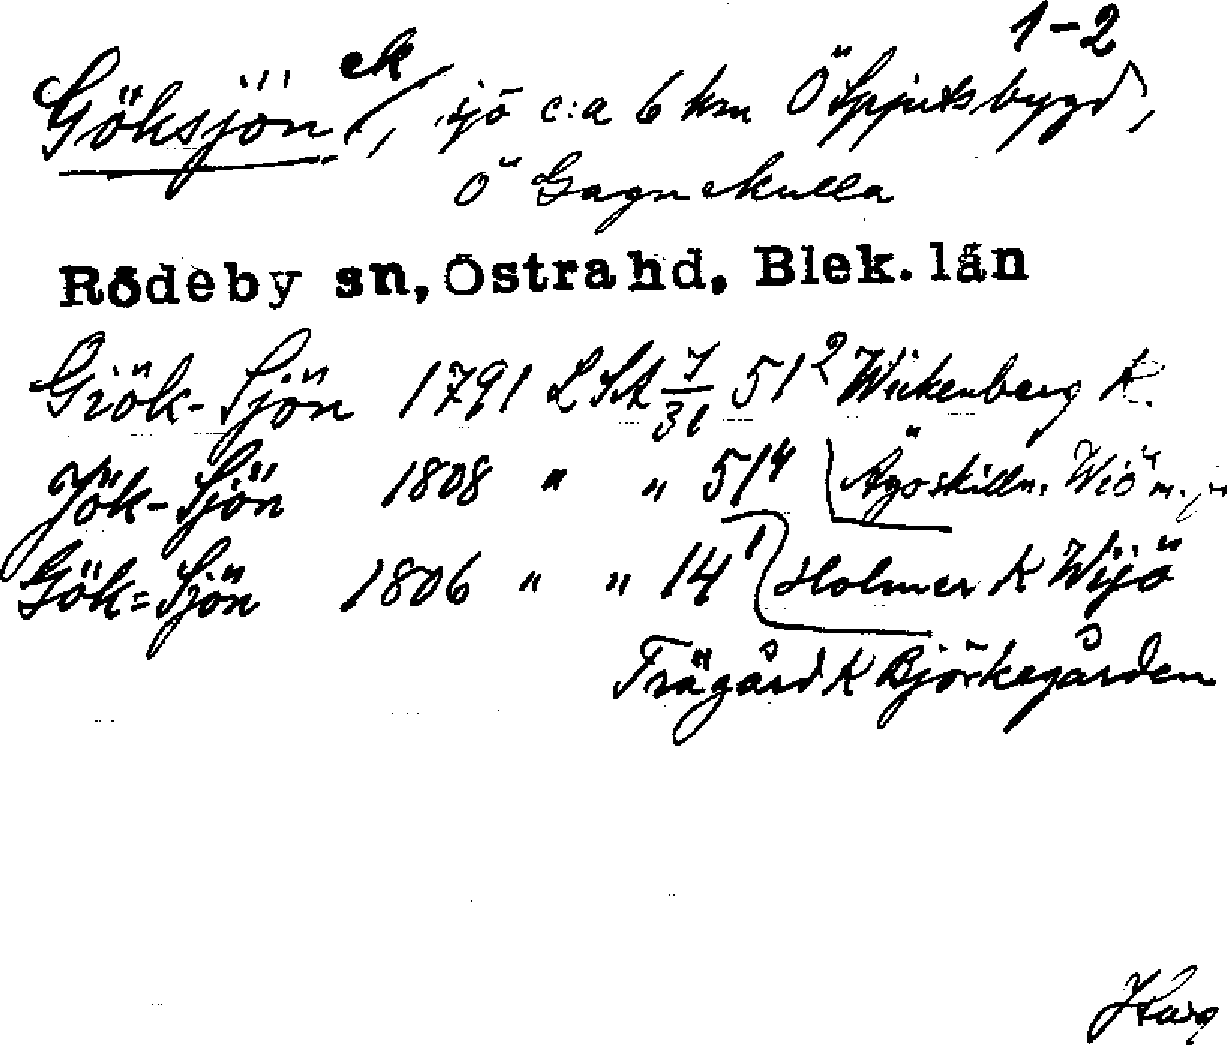 1-2
Göksjön ek, sjö c:a 6 km Ö Spjutsbygd,
Ö Gagnekulla
Rödeby sn, Östra hd, Blek. län
Giök-Sjön 1791 LSA 7/31 51² Wickenberg K.
Jök-Sjön 1808 " " 51⁴ Ägoskilln. Wiö m.
Gök=Sjön 1806 " " 14¹ Holmen K Wijö
Trägård K Björkegården